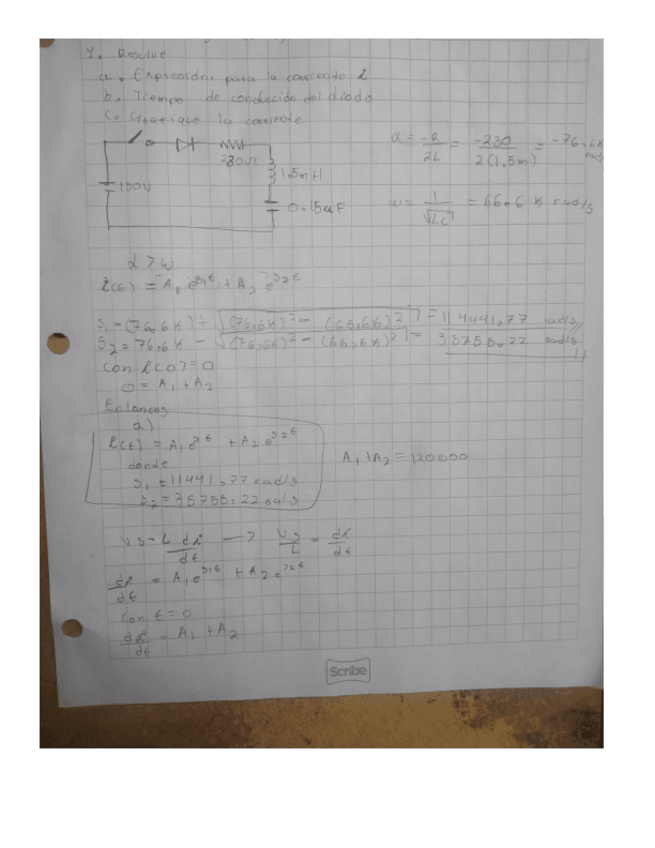 Resolve
a. Expresión para la corriente i
b. Tiempo de conducción del diodo
c. Grafique la corriente
α = -R/2L = -230/2(1.5m) = -76.6K rad/s
1.5mH
100V
0.15uF
ω = 1/√LC = 66.6 K rad/s
α > ω
i(t) = A₁ e^s₁t + A₂ e^s₂t
S₁ = (76,6K) + √(76,6K)² - (66,6K)² = 114441.77 rad/s
S₂ = 76,6K - √(76,6K)² - (66,6K)² = 38758.22 rad/s
Con i(0) = 0
0 = A₁ + A₂
Entonces
a)
i(t) = A₁ e^s₁t + A₂ e^s₂t
A₁ + A₂ = 120000
donde
S₁ = 11441.77 rad/s
S₂ = 38758.22 rad/s
Vs = L di/dt → Vs/L = di/dt
di/dt = A₁ e^s₁t + A₂ e^s₂t
Con t = 0
di/dt = A₁ + A₂
Scribe